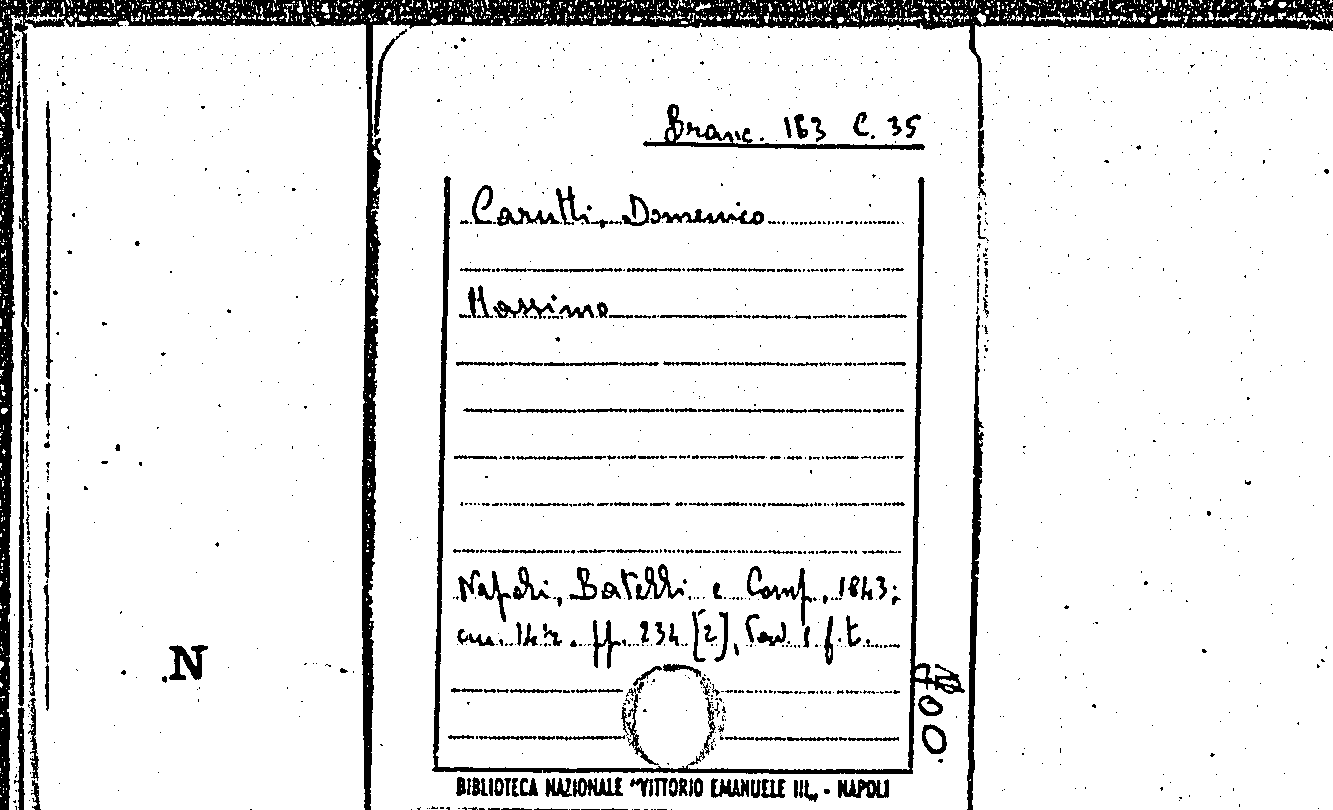 Branc. 163 C. 35
Carutti, Domenico
Massimo
Napoli, Batelli e Comp., 1843;
cm. 14½. pp. 234 [2], Tav. 1 f.t.
N
BIBLIOTECA NAZIONALE "VITTORIO EMANUELE III„ - NAPOLI